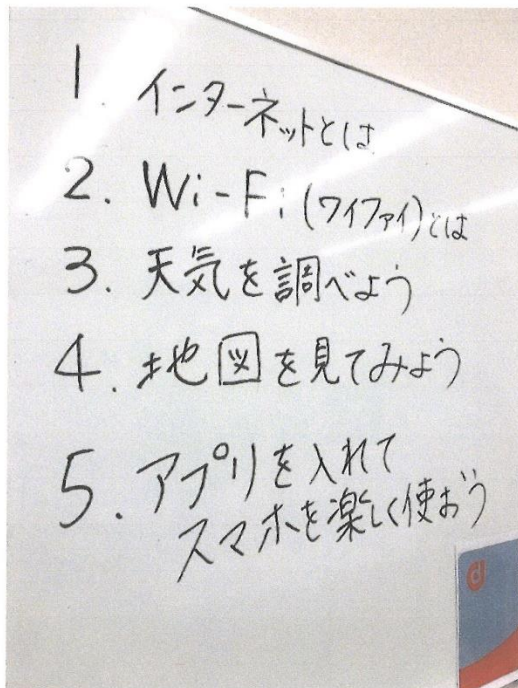 1 インターネットとは
2. Wi-Fi (ワイファイ)とは
3. 天気を調べよう
4. 地図を見てみよう
5. アプリを入れて
スマホを楽しく使おう
d